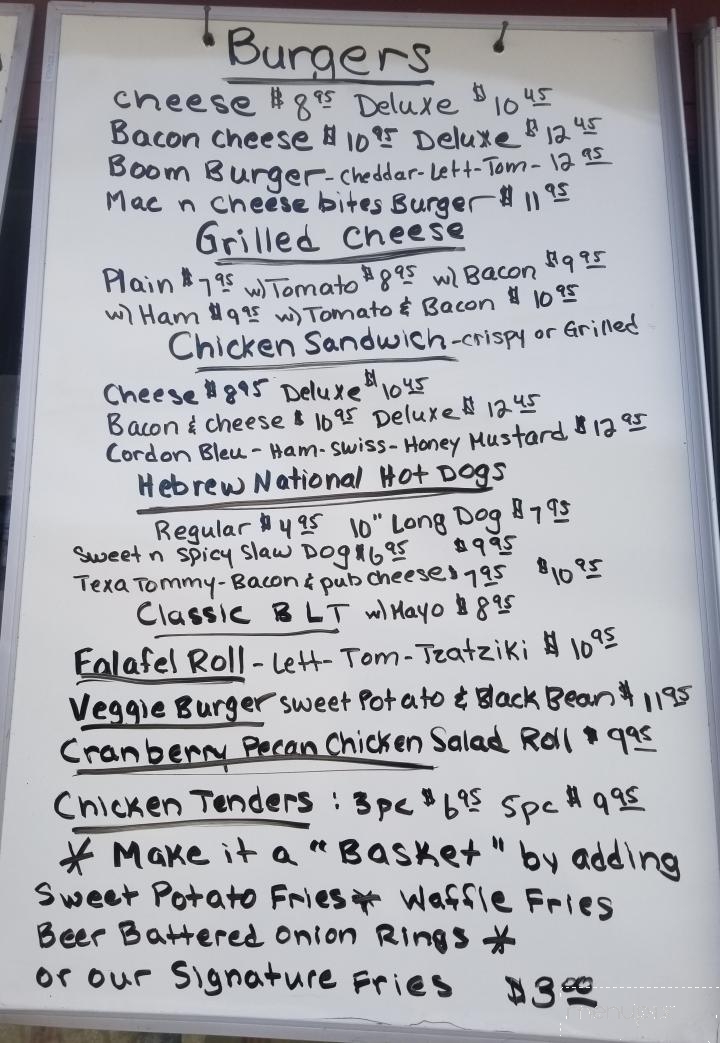 Burgers
cheese $8.95 Deluxe $10.45
Bacon cheese $10.95 Deluxe $12.45
Boom Burger-cheddar-Lett-Tom-12.95
Mac n cheese bites Burger $11.95
Grilled Cheese
Plain $7.95 w/Tomato $8.95 w/ Bacon $9.95
w/ Ham $9.95 w/Tomato & Bacon $10.95
Chicken Sandwich-crispy or Grilled
Cheese $8.95 Deluxe $10.45
Bacon & cheese $10.95 Deluxe $12.45
Cordon Bleu-Ham-Swiss-Honey Mustard $12.95
Hebrew National Hot Dogs
Regular $4.95 10" Long Dog $7.95
Sweet n Spicy Slaw Dog $6.95 $9.95
Texa Tommy-Bacon & pub cheese $7.95 $10.95
Classic BLT w/Mayo $8.95
Falafel Roll-Lett-Tom-Tzatziki $10.95
Veggie Burger sweet Potato & Black Bean $11.95
Cranberry Pecan Chicken Salad Roll $9.95
Chicken Tenders: 3pc $6.95 5pc $9.95
* Make it a "Basket" by adding
Sweet Potato Fries * Waffle Fries
Beer Battered Onion Rings *
or our Signature Fries $3.00
menupix